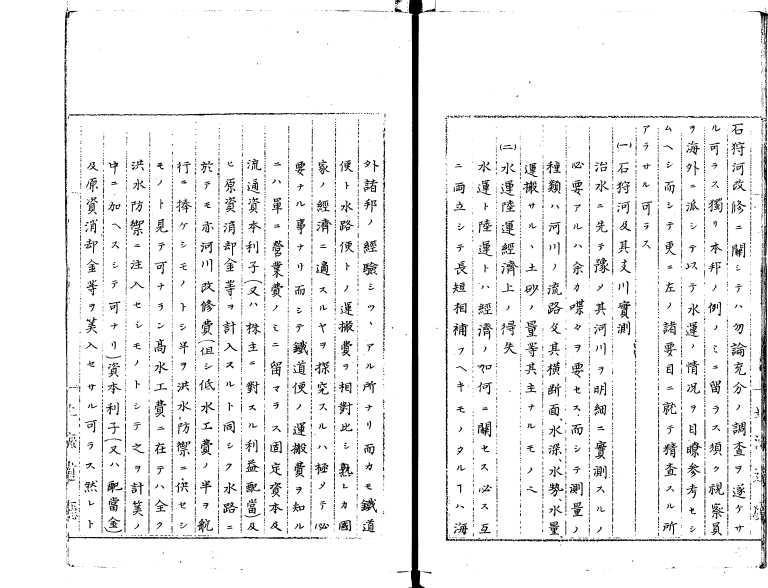 石狩河改修ニ關シテハ勿論充分ノ調査ヲ遂ケサ
ル可ラス獨リ本邦ノ例ノミニ留ラス須ク視察員
ヲ海外ニ派シテ以テ水運ノ情況ヲ目瞭參考セシ
ムヘシ而シテ更ニ左ノ諸要目ニ就テ精査スル所
アラサル可ラス
(一)石狩河及其支川實測
治水ニ先テ豫メ其河川ヲ明細ニ實測スルノ
必要アルハ余カ喋々ヲ要セス而シテ測量ノ
種類ハ河川ノ流路及其横斷面水深水勢水量
運搬サルヽ土砂ノ量等其主ナルモノニ
(二)水運陸運經濟上ノ得失
水運ト陸運トハ經濟ノ如何ニ關セス必ス互
ニ両立シテ長短相補フヘキモノタルヿハ海
外諸邦ノ經驗シツヽアル所ナリ而カモ鐵道
便ト水路便トノ運搬費ヲ相對比シ孰レカ國
家ノ經濟ニ適スルヤヲ探究スルハ極メテ必
要ナル事ナリ而シテ鐵道便ノ運搬費ヲ知ル
ニハ單ニ營業費ノミニ留マラス固定資本及
流通資本利子(又ハ株主ニ對スル利益配當)及
ヒ原資消却金等ヲ計入スルト同シク水路ニ
於テモ亦河川改修費(但シ低水工費ノ半ヲ航
行ニ捧ケシモノトシ半ヲ洪水防禦ニ供セシ
モノト見テ可ナラン高水工費ニ在テハ全ク
洪水防禦ニ注入セシモノトシテ之ヲ計算ノ
中ニ加ヘスシテ可ナリ)資本利子(又ハ配當金)
及原資消却金等ヲ算入セサル可ラス然レト